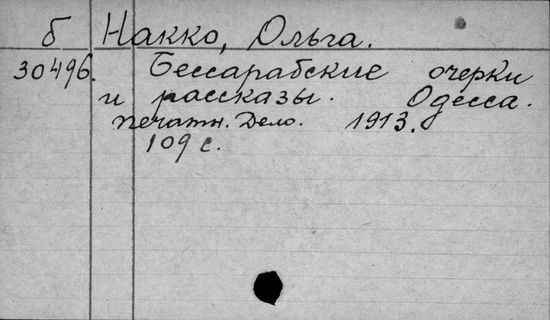 б Накко, Ольга.
30496. Бессарабские очерки
и рассказы. Одесса.
Печатн. Дело. 1913.
109 с.